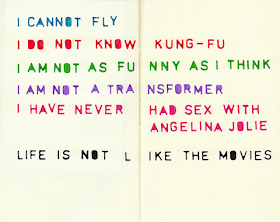 I CANNOT FLY
I DO NOT KNOW KUNG-FU
I AM NOT AS FUNNY AS I THINK
I AM NOT A TRANSFORMER
I HAVE NEVER HAD SEX WITH
ANGELINA JOLIE
LIFE IS NOT LIKE THE MOVIES